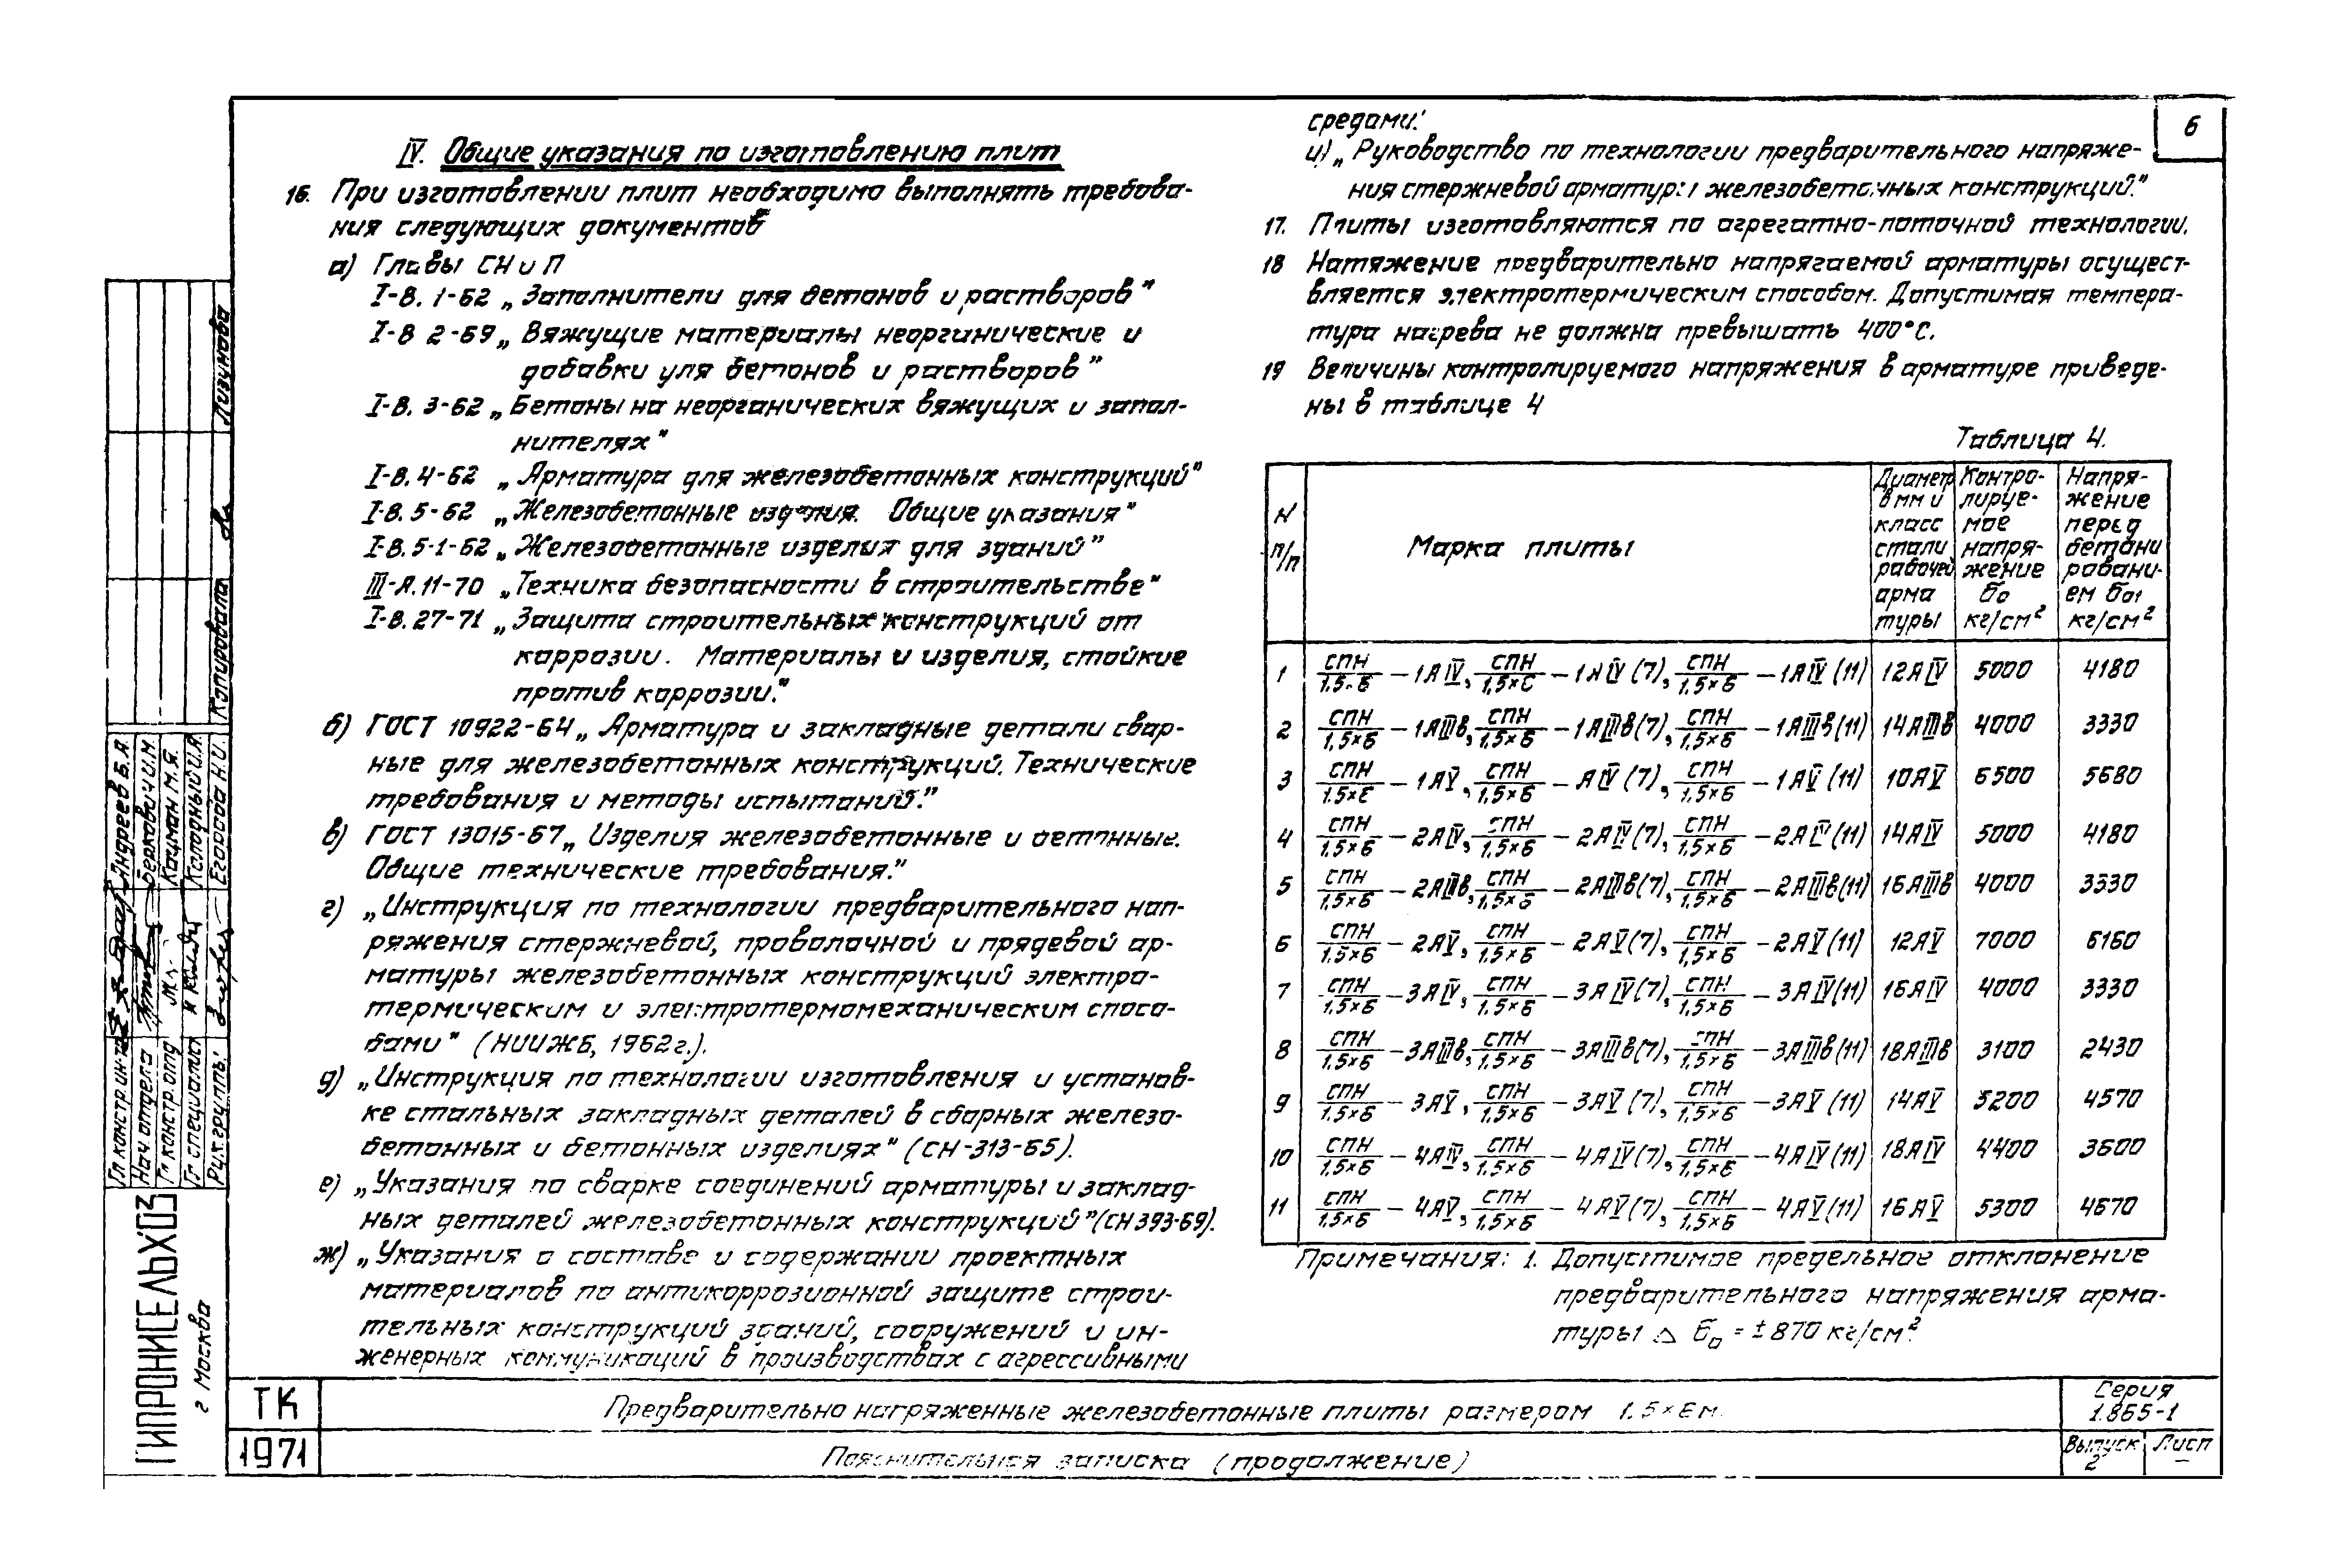 6
IV. Общие указания по изготовлению плит
16. При изготовлении плит необходимо выполнять требова-
ния следующих документов
а) Главы СНиП
I-В. 1-62 „Заполнители для бетонов и растворов"
I-В 2-69 „Вяжущие материалы неорганические и
добавки для бетонов и растворов"
I-В. 3-62 „Бетоны на неорганических вяжущих и запол-
нителях"
I-В. 4-62 „Арматура для железобетонных конструкций"
I-В. 5-62 „Железобетонные изделия. Общие указания"
I-В. 5-1-62 „Железобетонные изделия для зданий"
III-А. 11-70 „Техника безопасности в строительстве"
I-В. 27-71 „Защита строительных конструкций от
коррозии. Материалы и изделия, стойкие
против коррозии."
б) ГОСТ 10922-64 „Арматура и закладные детали свар-
ные для железобетонных конструкций. Технические
требования и методы испытаний."
в) ГОСТ 13015-67 „Изделия железобетонные и бетонные.
Общие технические требования."
г) „Инструкция по технологии предварительного нап-
ряжения стержневой, проволочной и прядевой ар-
матуры железобетонных конструкций электро-
термическим и электротермомеханическим спосо-
бами" (НИИЖБ, 1962г.).
д) „Инструкция по технологии изготовления и установ-
ке стальных закладных деталей в сборных железо-
бетонных и бетонных изделиях" (СН-313-65).
е) „Указания по сварке соединений арматуры и заклад-
ных деталей железобетонных конструкций" (СН 393-69).
ж) „Указания о составе и содержании проектных
материалов по антикоррозионной защите строи-
тельных конструкций зданий, сооружений и ин-
женерных коммуникаций в производствах с агрессивными
средами."
и) „Руководство по технологии предварительного напряже-
ния стержневой арматуры железобетонных конструкций."
17. Плиты изготовляются по агрегатно-поточной технологии.
18 Натяжение предварительно напрягаемой арматуры осущест-
вляется электротермическим способом. Допустимая темпера-
тура нагрева не должна превышать 400°С.
19 Величины контролируемого напряжения в арматуре приведе-
ны в таблице 4
Таблица 4.
N п/п | Марка плиты | Диаметр в мм и класс стали рабочей арма туры | Контро-лируе-мое напря-жение σо кг/см² | Напря-жение перед бетони ровани-ем σо1 кг/см²
1 СПН/1,5×6 – 1АIV, СПН/1,5×6 – 1АIV (7), СПН/1,5×6 – 1АIV (11) 12АIV 5000 4180
2 СПН/1,5×6 – 1АIIIв, СПН/1,5×6 – 1АIIIв(7), СПН/1,5×6 – 1АIIIв(11) 14АIIIв 4000 3330
3 СПН/1,5×6 – 1АV, СПН/1,5×6 – АIV (7), СПН/1,5×6 – 1АV (11) 10АV 6500 5680
4 СПН/1,5×6 – 2АIV, СПН/1,5×6 – 2АIV(7), СПН/1,5×6 – 2АIV (11) 14АIV 5000 4180
5 СПН/1,5×6 – 2АIIIв, СПН/1,5×6 – 2АIIIв(7), СПН/1,5×6 – 2АIIIв(11) 16АIIIв 4000 3330
6 СПН/1,5×6 – 2АV, СПН/1,5×6 – 2АV(7), СПН/1,5×6 – 2АV(11) 12АV 7000 6160
7 СПН/1,5×6 – 3АIV, СПН/1,5×6 – 3АIV(7), СПН/1,5×6 – 3АIV(11) 16АIV 4000 3330
8 СПН/1,5×6 – 3АIIIв, СПН/1,5×6 – 3АIIIв(7), СПН/1,5×6 – 3АIIIв(11) 18АIIIв 3100 2430
9 СПН/1,5×6 – 3АV, СПН/1,5×6 – 3АV (7), СПН/1,5×6 – 3АV (11) 14АV 5200 4570
10 СПН/1,5×6 – 4АIV, СПН/1,5×6 – 4АIV(7), СПН/1,5×6 – 4АIV(11) 18АIV 4400 3600
11 СПН/1,5×6 – 4АV, СПН/1,5×6 – 4АV(7), СПН/1,5×6 – 4АV(11) 16АV 5300 4670
Примечания: 1. Допустимое предельное отклонение
предварительного напряжения арма-
туры Δ σо = ±870 кг/см².
ТК
1971
Предварительно напряженные железобетонные плиты размером 1.5×6м.
Пояснительная записка (продолжение)
Серия
1.865-1
Выпуск
2
Лист
–
ГИПРОНИСЕЛЬХОЗ
г Москва
Гл констр. ин-та Андреев Б.А.
Нач отдела Беркович И.М.
Гл констр. отд Кацман М.Я.
Гл специалист Холодный И.А
Рук. группы Егорова Н.И.
Копировала Лизунова